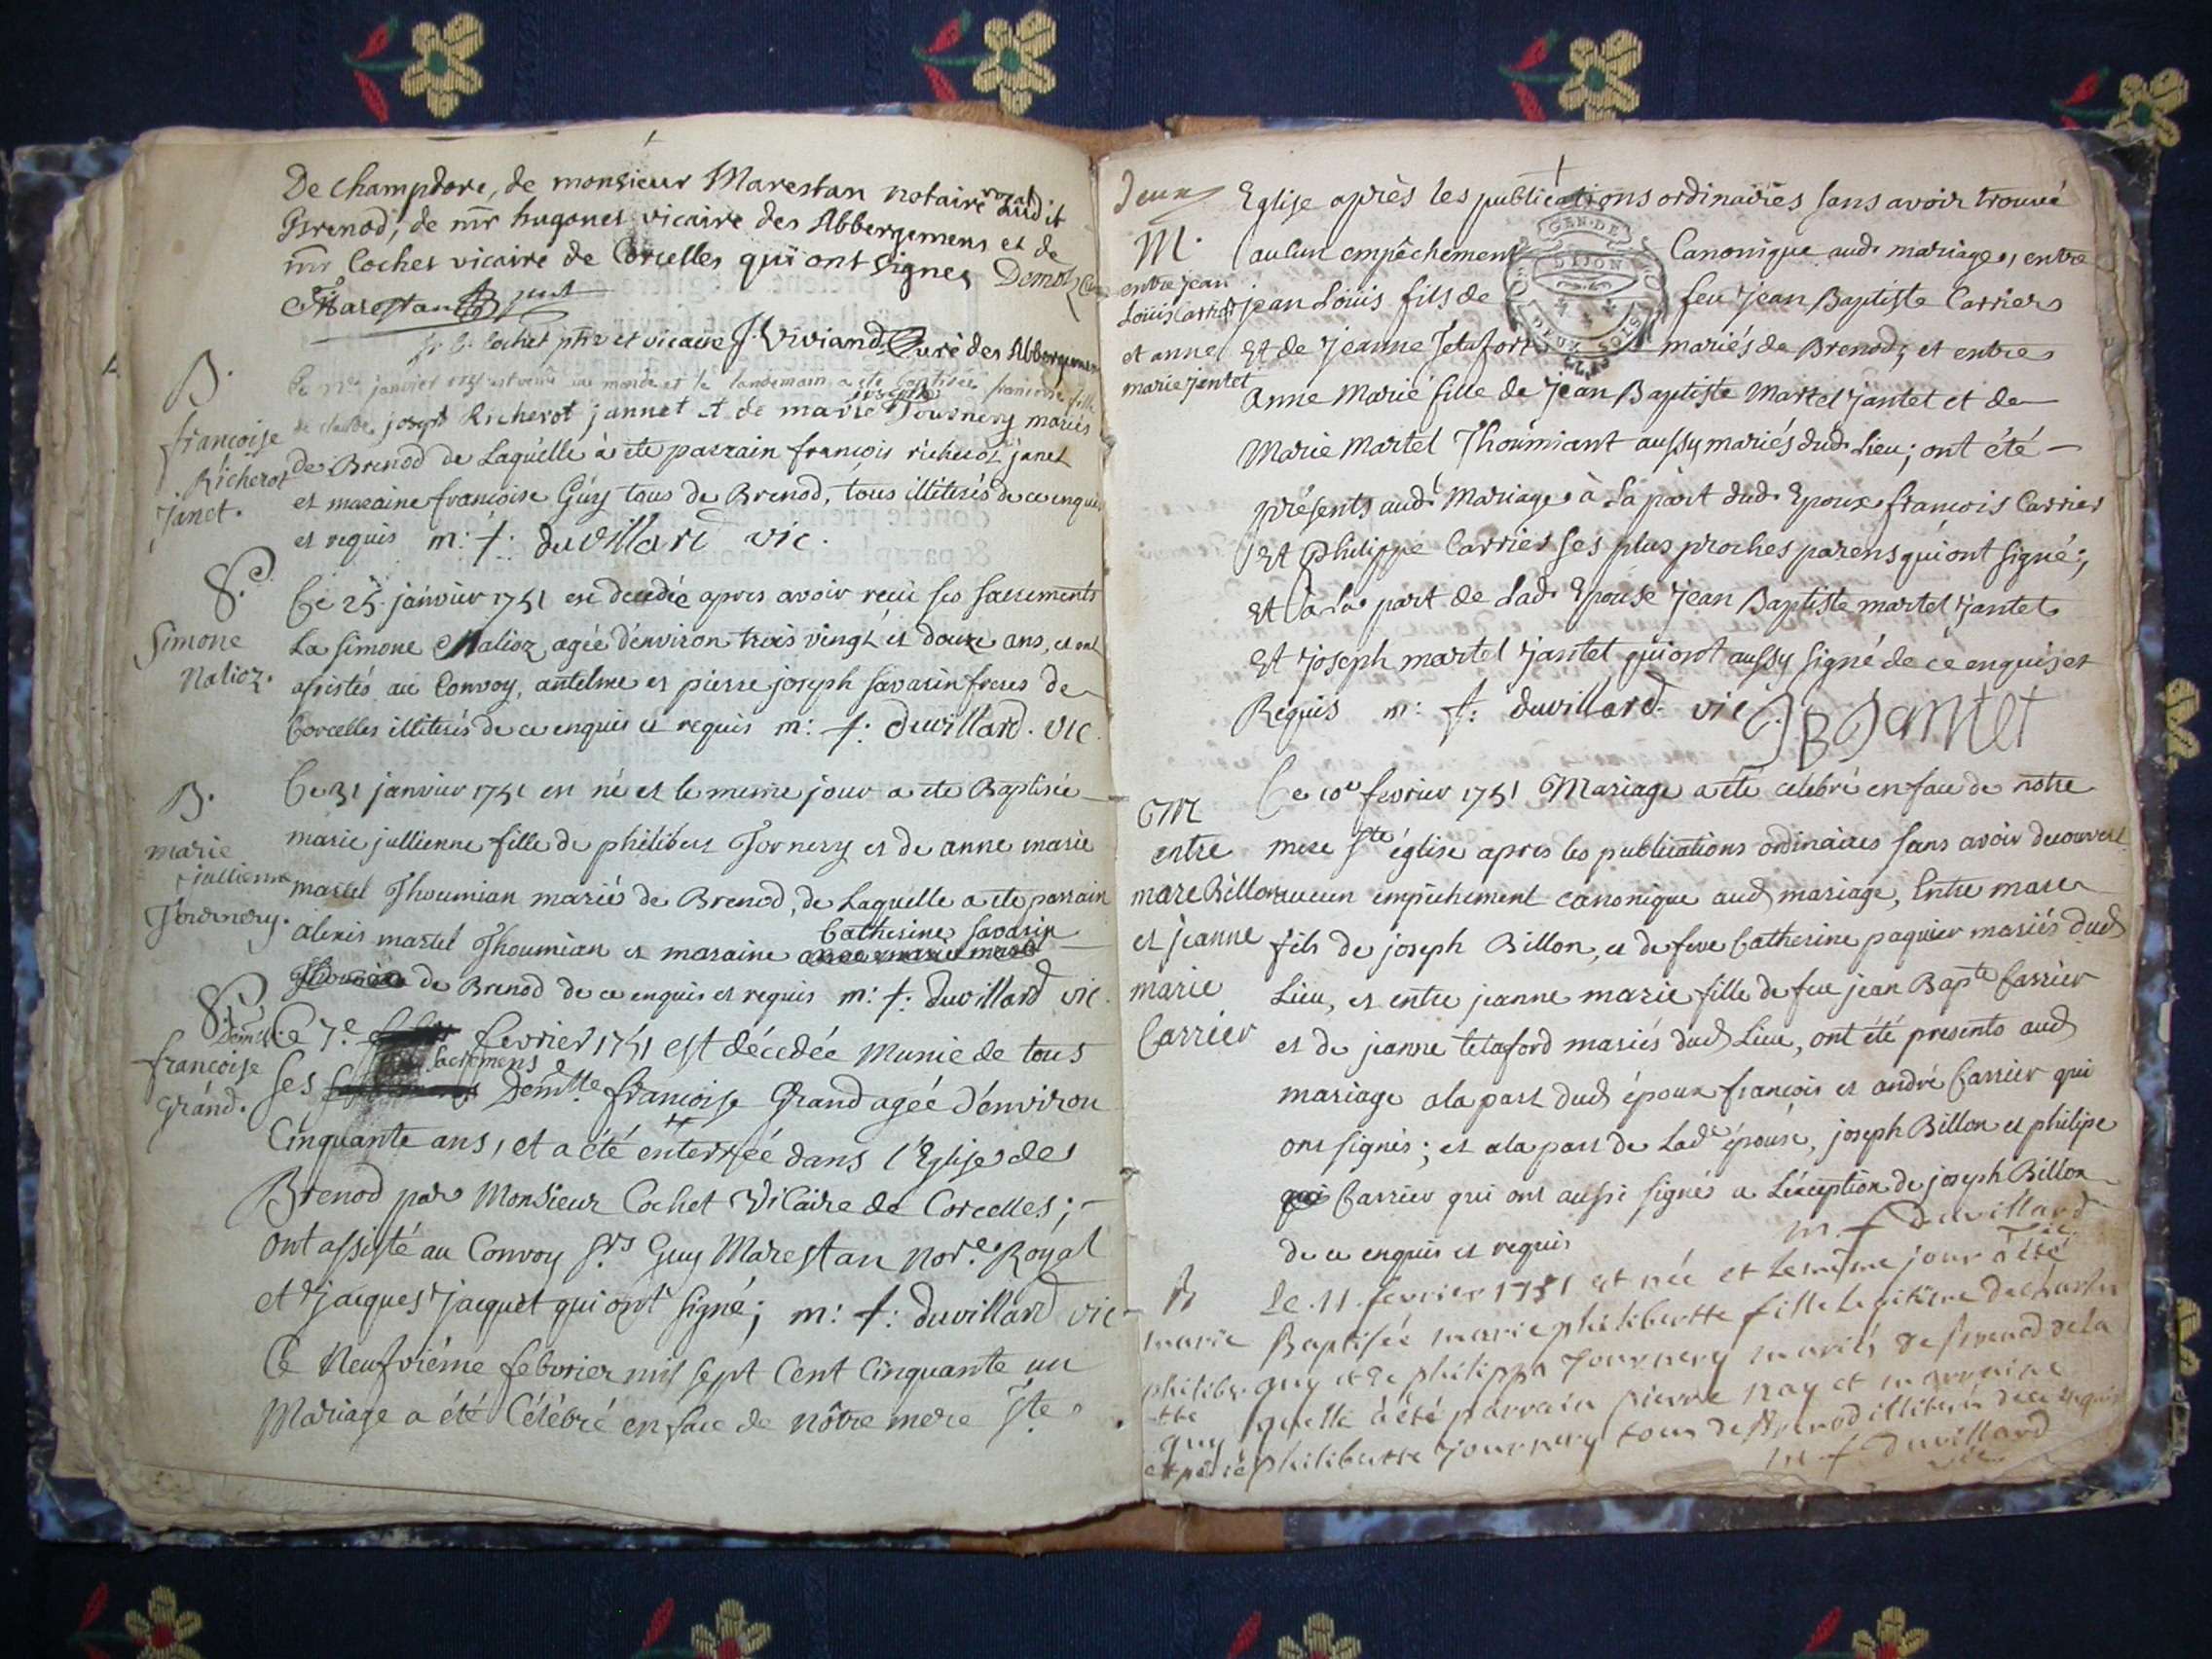 De Champdore, de monsieur Marestan notaire royal audit
Brenod, de mr hugonet vicaire des Abbergemens et de
mr Cochet vicaire de Corcelles qui ont signes Demolz
Marestan
Cochet ptre et vicaire J. Viviand Curé des Abbergemens
B.
françoise
Richerot
janet.
janvier 1751 est venue au monde et le landemain a ete baptisée francoise fille
de claude joseph Richerot jannet et de marie josephe Tournery mariés
de Brenod de Laquelle à ete parrain françois richerot janet
et maraine francoise Guy tous de Brenod, tous illiterés de ce enquis
et requis m: f: duvillard vic.
S.
Simone
Nalioz.
Ce 25 janvier 1751 est decedée apres avoir recü ses sacrements
La simone Nalioz agée d'environ trois vingt et douze ans, et ont
assistés au Convoy, antelme et pierre joseph savarin freres de
Corcelles illiterés de ce enquis et requis m: f: duvillard. vic.
B.
marie
jullienne
Tournery.
Ce 31 janvier 1751 est né et le meme jour a ete Baptisée
marie jullienne fille de philibert Tornery et de anne marie
martel Thoumian mariés de Brenod, de Laquelle a ete parrain
alexis martel Thoumian et maraine Catherine savarin
de Brenod de ce enquis et requis m: f: duvillard vic.
S.
Demlle
françoise
Grand.
Ce 7.e fevrier 1751 est décedée Munie de tous
ses sacremens Demlle françoise Grand agée d'environ
Cinquante ans, et a été enterrée dans l'Eglise de
Brenod par Monsieur Cochet Vicaire de Corcelles;
ont assisté au Convoy Srs Guy Marestan Nore Royal
et jacques jacquet qui ont signé; m: f: duvillard vic
Ce Neufviéme febvrier mil sept Cent Cinquante un
Mariage a été Célébré en face de nôtre mere Ste
deux
Eglise après les publications ordinaires sans avoir trouvé
M.
entre jean
Louis Carrier
et anne
marie jantet
aucun empêchement Canonique aud. mariage, entre
jean Louis fils de feu jean Baptiste Carrier
GEN. DE
DIJON
DEUX SOLS
Et de jeanne Tetafort mariés de Brenod, et entre
Anne Marie fille de jean Baptiste Martel jantet et de
Marie Martel Thoumiant aussy mariés dud. Lieu; ont été
présents aud. Mariage à La part dud. Epoux françois Carrier
Et Philippe Carrier ses plus proches parens qui ont signé;
Et à La part de Lad. Epouse jean Baptiste martel jantet
Et joseph martel jantet qui ont aussy signé de ce enquis et
Requis m: f: duvillard. vic. JB Jantet
M
entre
marc Billon
et jeanne
marie
Carrier
Ce 10e fevrier 1751 Mariage a ete celebré en face de notre
mere Ste église apres les publications ordinaires sans avoir decouvert
aucun empêchement canonique aud mariage, Entre marc
fils de joseph Billon, et de feue Catherine paquier mariés dud
Lieu, et entre jeanne marie fille de feu jean Bapte Carrier
et de jeanne tetaford mariés dud Lieu, ont été presents aud
mariage a la part dud époux françois et andré Carrier qui
ont signés; et a la part de Lade épouse, joseph Billon et philipe
Carrier qui ont aussi signés a L'exception de joseph Billon
de ce enquis et requis m. f duvillard
vic.
B
marie
philiber
tte
guy
expedié
Le . 11 . fevrier 1751 est née et le même jour a été
Baptisée marie philibertte fille Legitime de
guy et de philippa Tournery mariés de Brenod de la
quelle à été parrain pierre nay et marraine
philibertte Tournery tous de Brenod illiterés de ce enquis
m f duvillard
vic.